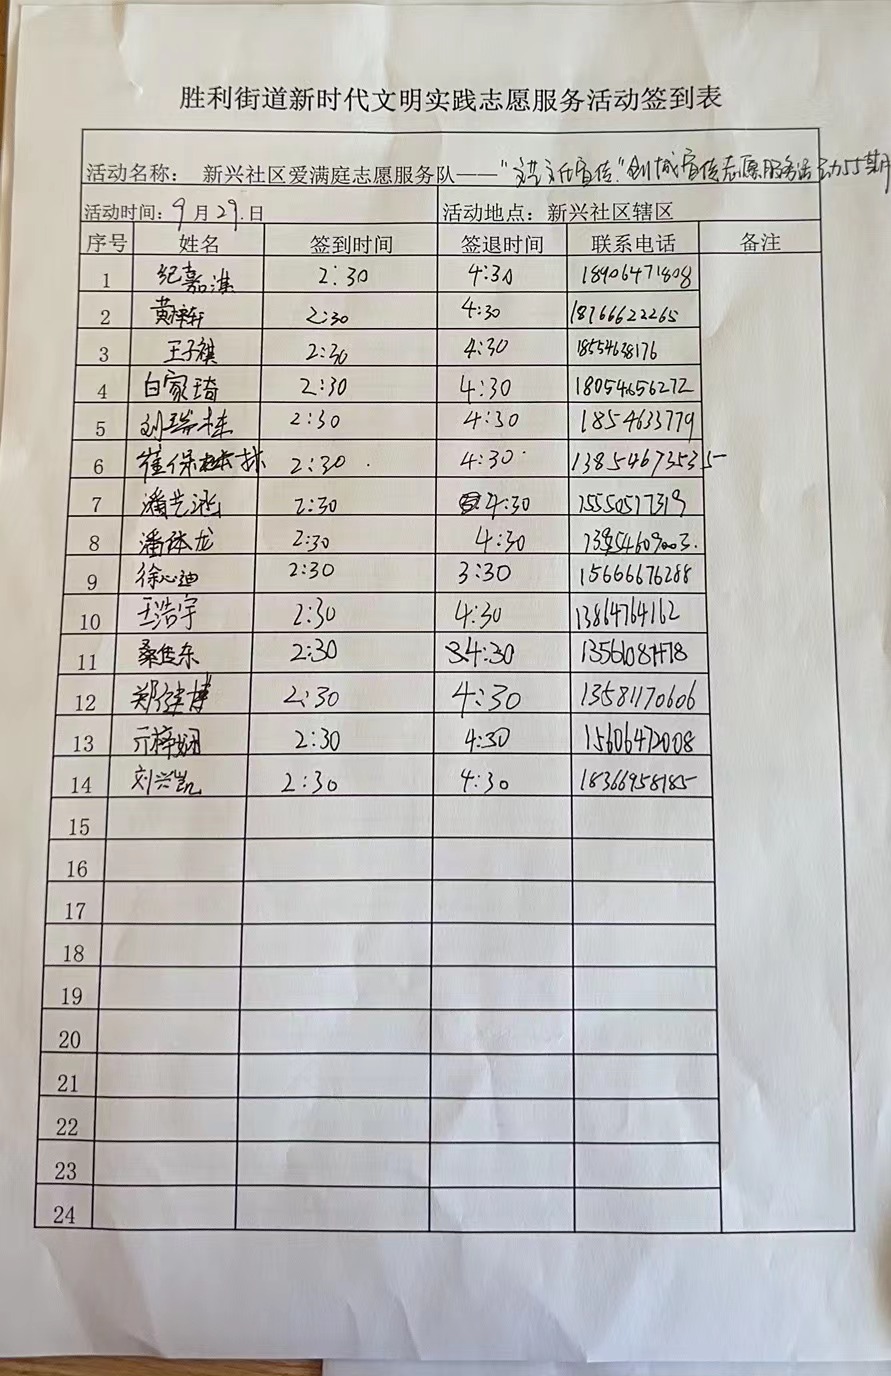 胜利街道新时代文明实践志愿服务活动签到表
活动名称： 新兴社区爱满庭志愿服务队——“ 宣传”创城宣传志愿服务活动55期
活动时间：9月29.日 活动地点：新兴社区辖区
序号 姓名 签到时间 签退时间 联系电话 备注
1 纪嘉淇 2:30 4:30 18906471808
2 黄梓轩 2:30 4:30 18766622265
3 王子祺 2:30 4:30 18554638176
4 白家琦 2:30 4:30 18054656272
5 刘瑞栋 2:30 4:30 1854633779
6 崔保林 2:30 4:30 13854673535
7 潘艺涵 2:30 4:30 15550577319
8 潘 龙 2:30 4:30
9 徐心迪 2:30 3:30 15666676288
10 王浩宇 2:30 4:30 13864764162
11 桑 东 2:30 4:30
12 郑 博 2:30 4:30 13581170606
13 亓梓娴 2:30 4:30 15606472008
14 刘兴凯 2:30 4:30 18366958185
15
16
17
18
19
20
21
22
23
24